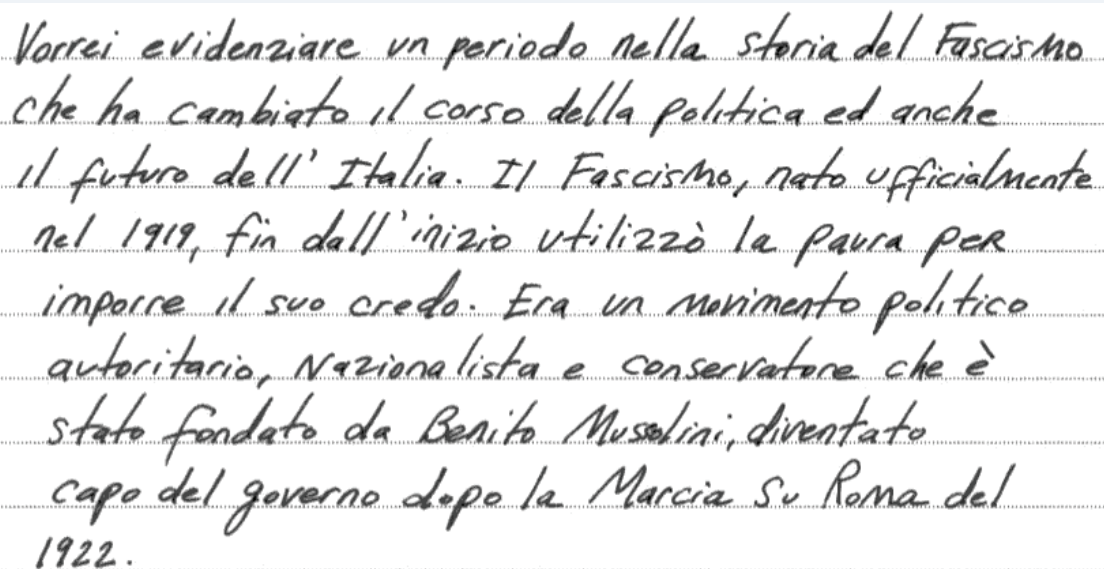 Vorrei evidenziare un periodo nella storia del Fascismo
che ha cambiato il corso della politica ed anche
il futuro dell'Italia. Il Fascismo, nato ufficialmente
nel 1919, fin dall'inizio utilizzò la paura per
imporre il suo credo. Era un movimento politico
autoritario, Nazionalista e conservatore che è
stato fondato da Benito Mussolini, diventato
capo del governo dopo la Marcia su Roma del
1922.